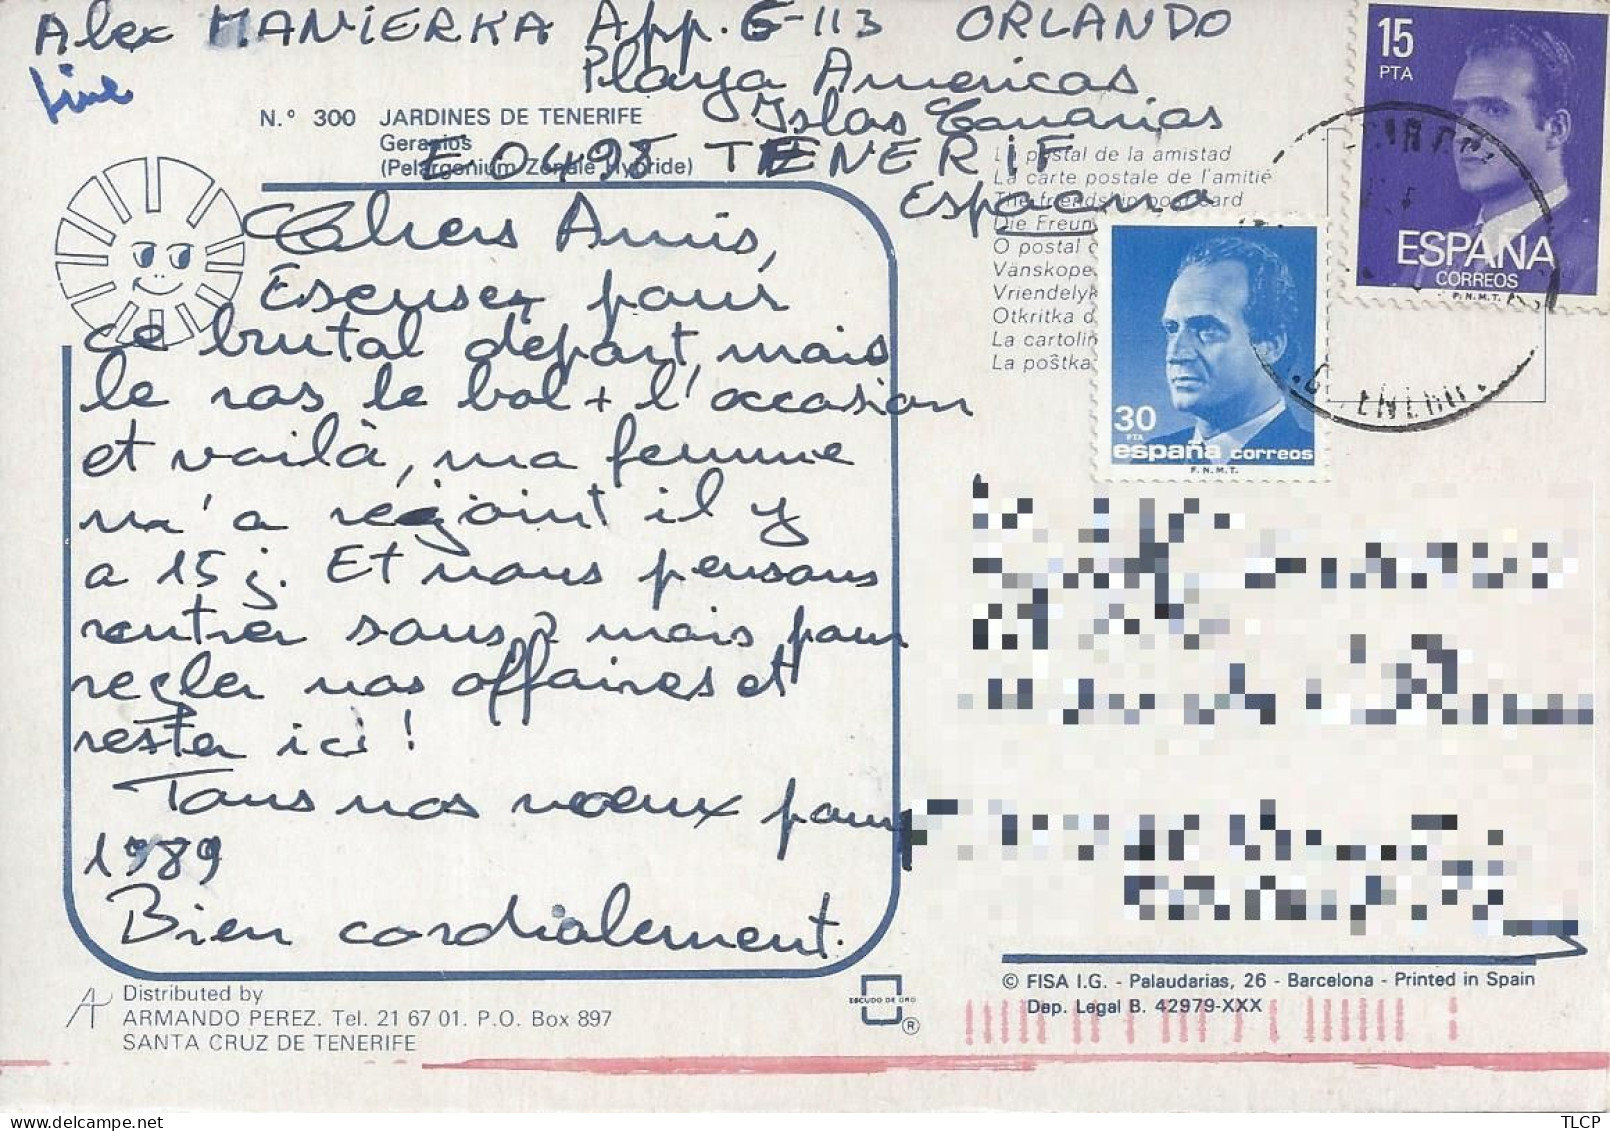 Alex MANIERKA App. G-113 ORLANDO
Playa Americas
Islas Canarias
E 0498 TENERIF
Espaena
N.º 300 JARDINES DE TENERIFE
Geranios
(Pelargonium Zonale Hybride)
La postal de la amistad
La carte postale de l'amitié
The friendship post card
Die Freun
O postal
Vänskope
Vriendelyk
Otkritka d
La cartolin
La poštka
15
PTA
ESPAÑA
CORREOS
F.N.M.T.
30
PTA
españa correos
F.N.M.T.
Chers Amis,
Escusez pour
ce brutal depart, mais
le ras le bol + l'occasion
et voilà, ma femme
m'a réjoint il y
a 15 j. Et nous pensons
rentrer sous 2 mois pour
regler nos affaires et
reste ici !
Tous nos voeux pour
1989
Bien cordialement.
Distributed by
ARMANDO PEREZ. Tel. 21 67 01. P.O. Box 897
SANTA CRUZ DE TENERIFE
ESCUDO DE ORO
®
© FISA I.G. - Palaudarias, 26 - Barcelona - Printed in Spain
Dep. Legal B. 42979-XXX
TLCP